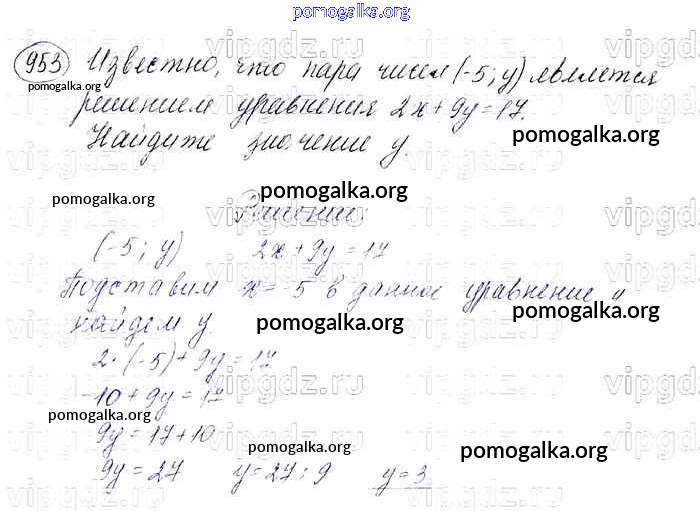 pomogalka.org
953 Известно, что пара чисел (-5; y) является
pomogalka.org
решением уравнения 2x + 9y = 17.
Найдите значение y.
pomogalka.org
pomogalka.org
pomogalka.org
Решение:
(-5; y) 2x + 9y = 17
Подставим x = -5 в данное уравнение и
pomogalka.org
найдем y.
pomogalka.org
2·(-5) + 9y = 17
-10 + 9y = 17
pomogalka.org
9y = 17 + 10
pomogalka.org
pomogalka.org
9y = 27 y = 27 : 9 y = 3
vipgdz.ru